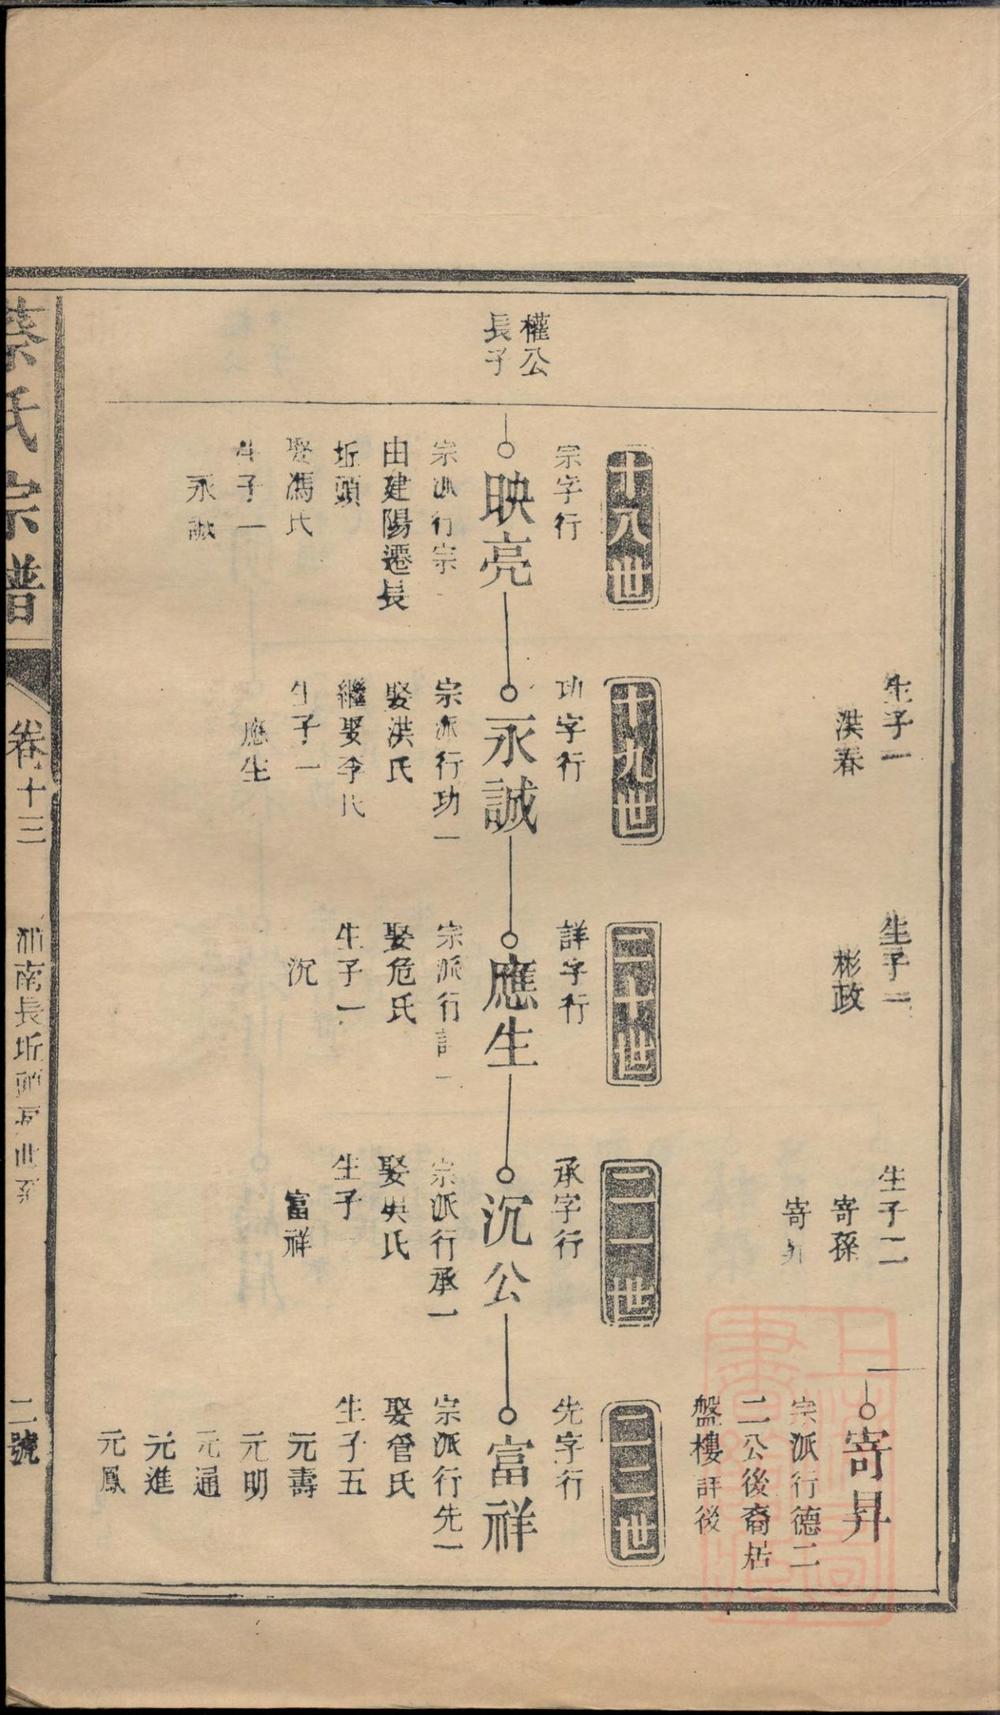 生子一
洪春
生子一
彬政
生子二
寄孫
寄昇
寄昇
宗派行德二
二公後裔居
盤樓詳後
十八世
十九世
二十世
二一世
二二世
權公
長子
宗字行
映亮
宗派行宗一
由建陽遷長
坵頭
娶馮氏
生子一
永誠
功字行
永誠
宗派行功一
娶洪氏
繼娶李氏
生子一
應生
詳字行
應生
宗派行詳一
娶危氏
生子一
沉
承字行
沉公
宗派行承一
娶吳氏
生子
富祥
先字行
富祥
宗派行先一
娶管氏
生子五
元壽
元明
元通
元進
元鳳
蔡氏宗譜
卷十三
南長坵頭
二號